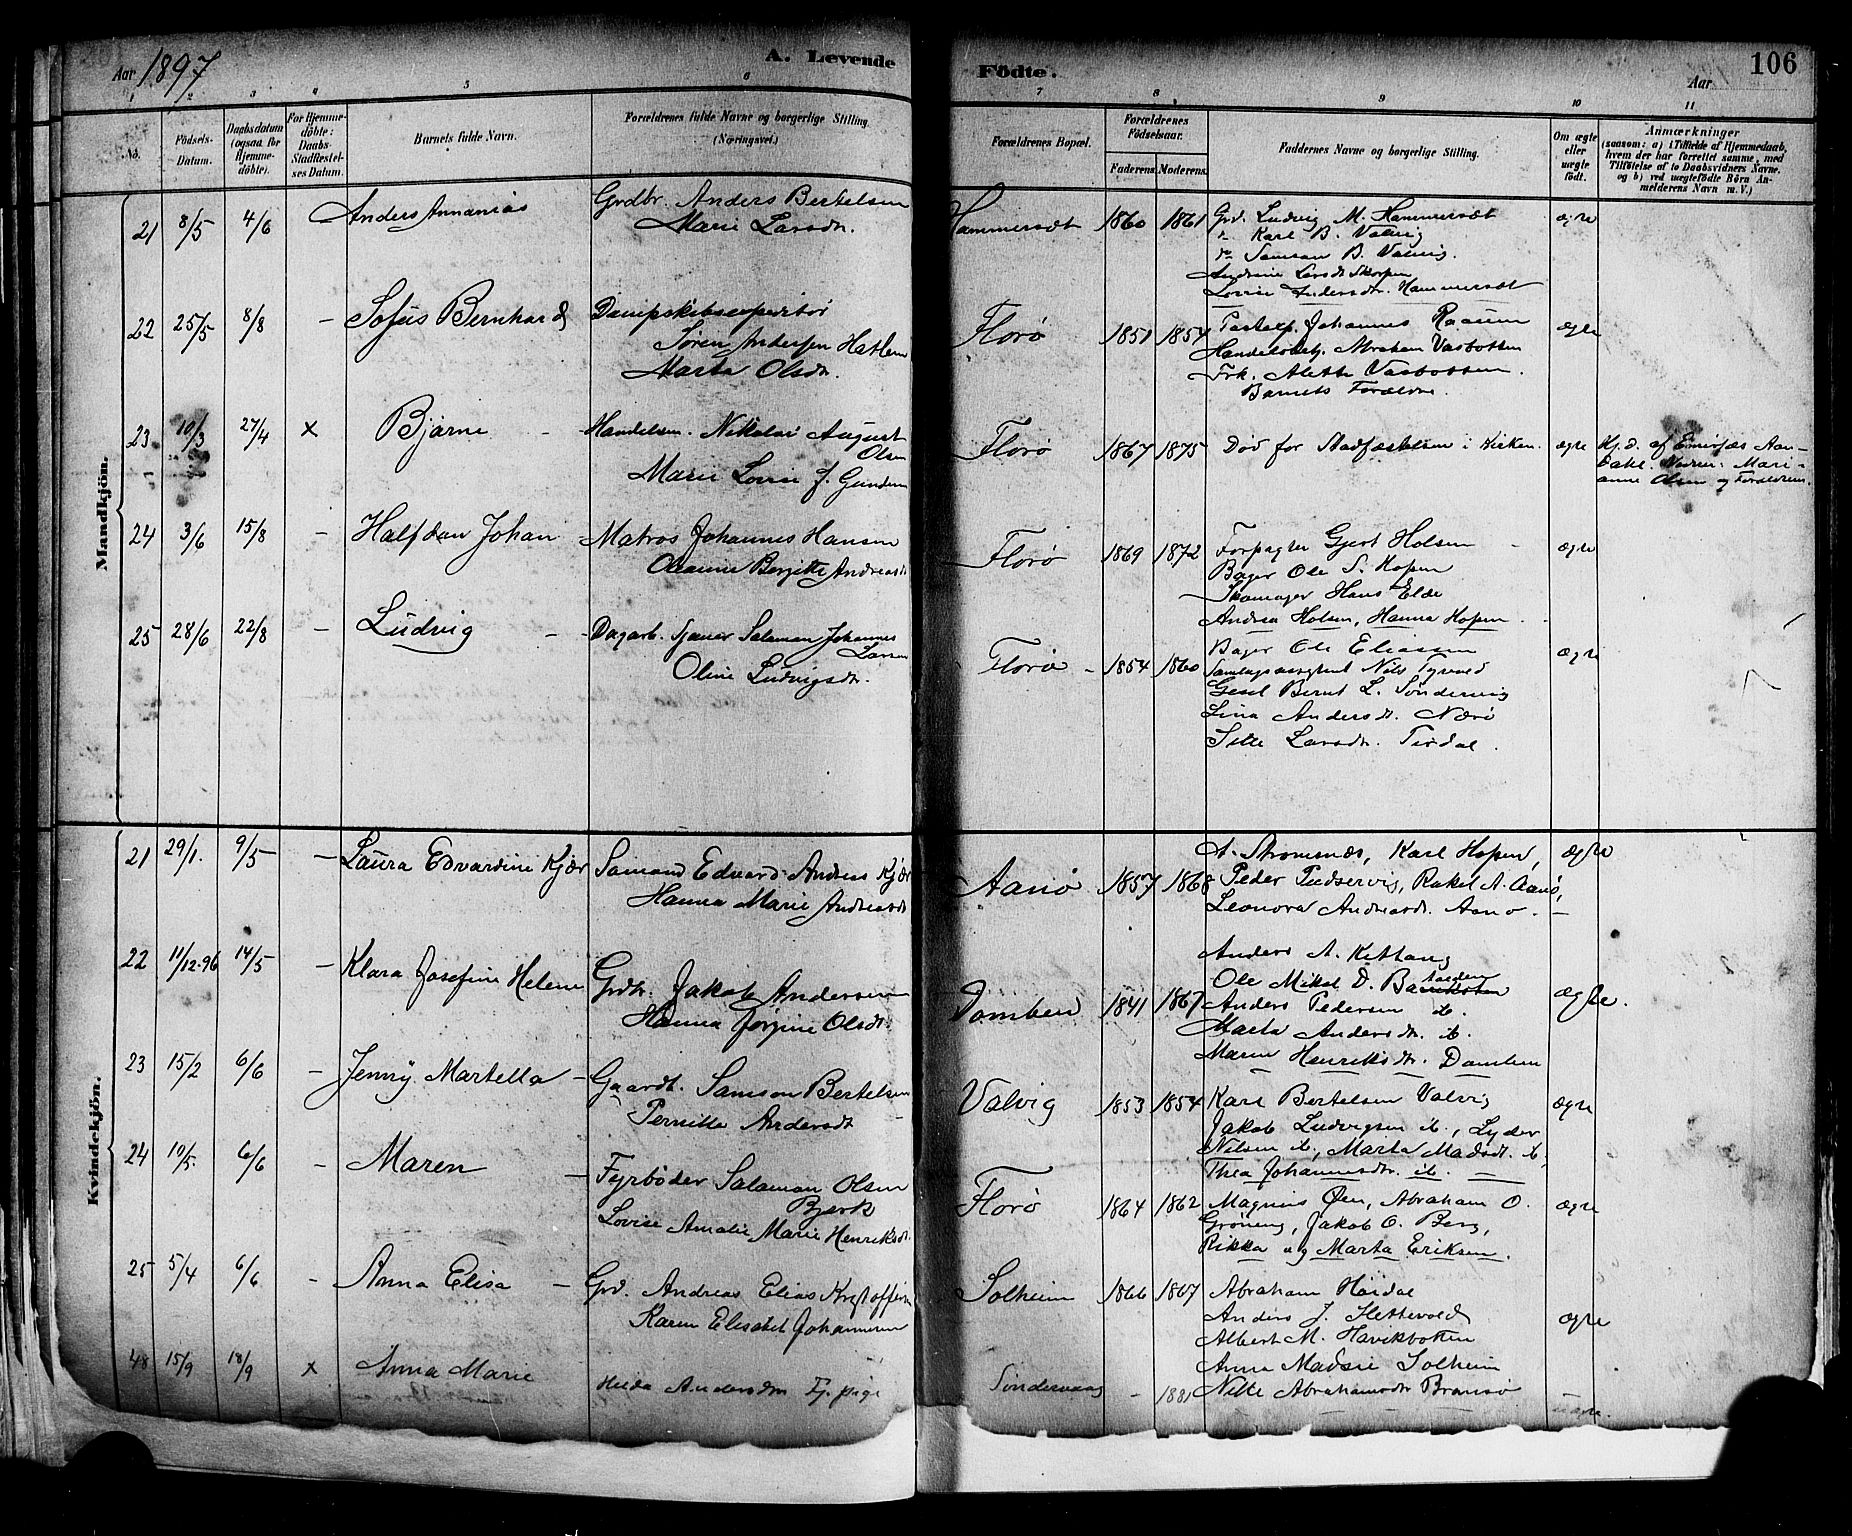 Aar 1897
A. Levende
Födte.
Aar
106
1 2 3 4 5 6 7 8 9 10 11
No.
Födsels-Datum.
Daabsdatum (ogsaa for Hjemme-döbte).
For Hjemme-döbte: Daabs-Stadfæstel-ses Datum.
Barnets fulde Navn.
Forældrenes fulde Navne og borgerlige Stilling.
(Næringsvei.)
Forældrenes Bopæl.
Forældrenes Födselsaar.
Faderens. Moderens.
Faddernes Navne og borgerlige Stilling.
Om ægte eller uægte födt.
Anmærkninger
(saasom: a) i Tilfælde af Hjemmedaab,
hvem der har forrettet samme, med
Tilföielse af to Daabsvidners Navne.
og b) ved uægtefödte Börn An-
melderens Navn m. V.)
Mandkjön.
21 8/5 4/6 Anders Annanias
Grdbr. Anders Bertelsen
Marie Larsdr.
Hammersæt 1860 1861
Grd. Ludvig M. Hammersæt
Karl B. Valvig
do Samson B. Valvig.
Andrine Larsdr Skorpen
Lovise Andersdr. Hammersæt
ægte
22 25/5 8/8 - Sofus Bernhard
Dampskibsexpeditör
Søren Andersen Hatlem
Marta Olsdr.
Florø 1851 1854
Johannes Raaum
Handelsbetj. Abraham Vasbotten
Frk. Alette Vasbotten.
Barnets Forældre
ægte
23 10/3 27/4 x Bjarne -
Handelsm. Nikolai August
Olsen
Marie Lovise J. Gundersen
Florø 1867 1875
Död før Stadfæstelsen i Kirken.
ægte
Hj.d. af
Vidner: Mari-
anne Olsen og Forældrene.
24 3/6 15/8 - Halfdan Johan
Matros Johannes Hansen
Oleanne Bergitte Andreasdr
Florø 1869 1872
Forpagter Gjert Holsen -
Bager Ole S. Hopen
Skomager Hans Elde
Andrea Holsen, Hanna Hopen.
ægte
25 28/6 22/8 - Ludvig -
Dagarb. Sjauer Salamon Johannes
Larsen
Oline Ludvigsdr.
Florø - 1854 1860
Bager Ole Eliassen
Samlagsassistent Nils
Gesel Bernt L. Søndervig
Lina Andersdt. Nærø
Larsdr.
ægte
Kvindekjön.
21 29/1. 9/5 - Laura Edvardine Kjær
Samund Edvard Andreas Kjær
Hanna Marie Andreasdr
Aanø 1857 1868
A. Stromsnæs, Karl Hopen,
Peder Rakel A. Aanø,
Leonora Andreasdr. Aanø. -
ægte
22 11/12.96 14/5 - Klara Josefine Helene
Grdbr. Jakob Andersen
Hanna Jørgine Olsdr.
Domben 1841 1867
Anders A. Kittang
Ole Mikal D.
Anders Pedersen ib.
Marta Andersdr. ib.
Maren Henriksdr. Damben
ægte.
23 15/2 6/6 - Jenny Martella -
Gaardbr. Samson Bertelsen
Pernille Andersdr -
Valvig 1853 1854
Karl Bertelsen Valvig
Jakob Ludvigsen ib., Lyder
Nilsen ib., Marta Madsdr. ib.
Thea Johannesdr. ib. -
ægte
24 10/5. 6/6 - Maren -
Fyrbøder Salamon Olsen
Bjerk
Lovise Amalie Marie Henriksdr.
Florø 1864 1862
Magnus Øen, Abraham O.
Grøneng, Jakob O. Berg,
Rikka og Marta Eriksen.
ægte
25 5/4 6/6 - Anna Elisa -
Grd. Andreas Elias Kristoffersen
Karen Elisabet Johannesen
Solheim 1866 1867
Abraham Høidal
Anders J.
Albert M. Havikbotten
Anna Madsie Solheim
Nille Abrahamsdr Bransø
ægte
48 15/9 18/9 x Anna Marie
Hilda Andersdtr Tj. pige
Søndervaag - 1881 - uægte.